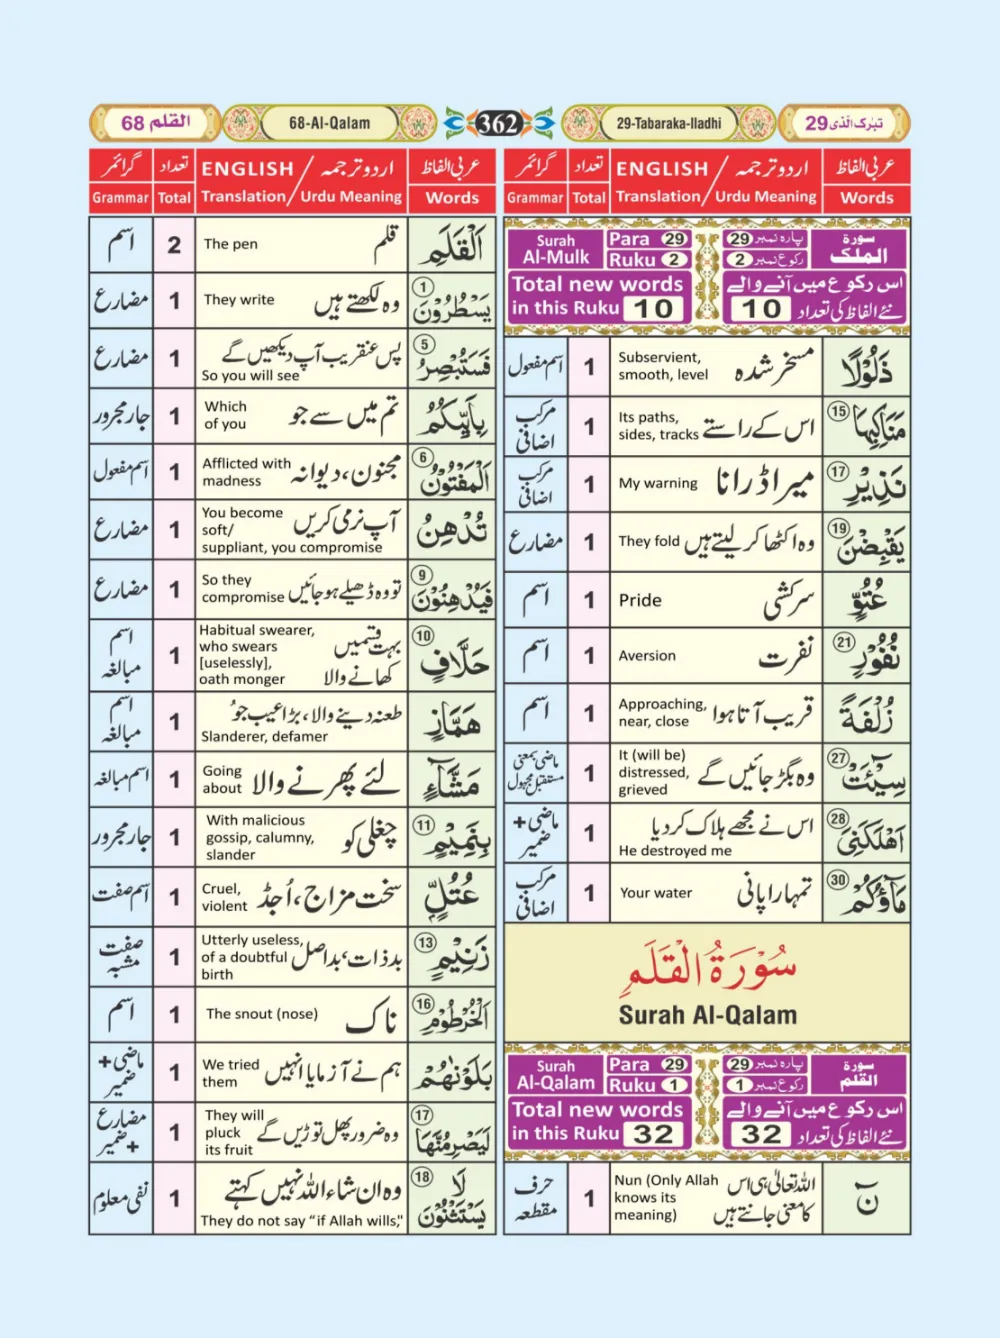 القلم 68
68-Al-Qalam
362
29-Tabaraka-lladhi
تبٰرک الّذی 29
عربی الفاظ
اردو ترجمہ / ENGLISH
تعداد
گرائمر
Words
Translation / Urdu Meaning
Total
Grammar
سورة الملک
پارہ نمبر 29
رکوع نمبر 2
Para 29
Ruku 2
Surah
Al-Mulk
اس رکوع میں آنے والے
نئے الفاظ کی تعداد 10
Total new words
in this Ruku 10
ذَلُوْلًا
مسخر شدہ
Subservient,
smooth, level
1
اسم مفعول
مَنَاكِبِهَا 15
اس کے راستے
Its paths,
sides, tracks
1
مرکب اضافی
نَذِيْرِ 17
میرا ڈرانا
My warning
1
مرکب اضافی
يَقْبِضْنَ 19
وہ اکٹھا کر لیتے ہیں
They fold
1
مضارع
عُتُوٍّ
سرکشی
Pride
1
اسم
نُفُوْرٍ 21
نفرت
Aversion
1
اسم
زُلْفَةً
قریب آتا ہوا
Approaching,
near, close
1
اسم
سِيْٓـَٔتْ 27
وہ بگڑ جائیں گے
It (will be)
distressed,
grieved
1
ماضی بمعنی
مستقبل مجہول
اَهْلَكَنِىَ 28
اس نے مجھے ہلاک کر دیا
He destroyed me
1
ماضی +
ضمیر
مَآؤُكُمْ 30
تمہارا پانی
Your water
1
مرکب اضافی
سُوْرَةُ الْقَلَمِ
Surah Al-Qalam
سورة القلم
پارہ نمبر 29
رکوع نمبر 1
Para 29
Ruku 1
Surah
Al-Qalam
اس رکوع میں آنے والے
نئے الفاظ کی تعداد 32
Total new words
in this Ruku 32
نٓ
اللہ تعالیٰ ہی اس
کا معنی جانتے ہیں
Nun (Only Allah
knows its
meaning)
1
حرف مقطعہ
عربی الفاظ
اردو ترجمہ / ENGLISH
تعداد
گرائمر
Words
Translation / Urdu Meaning
Total
Grammar
اَلْقَلَمِ
قلم
The pen
2
اسم
يَسْطُرُوْنَ 1
وہ لکھتے ہیں
They write
1
مضارع
فَسَتُبْصِرُ 5
پس عنقریب آپ دیکھیں گے
So you will see
1
مضارع
بِاَيِّىكُمُ
تم میں سے جو
Which
of you
1
جار مجرور
الْمَفْتُوْنُ 6
مجنون، دیوانہ
Afflicted with
madness
1
اسم مفعول
تُدْهِنُ
آپ نرمی کریں
You become
soft/
suppliant, you compromise
1
مضارع
فَيُدْهِنُوْنَ 9
تو وہ ڈھیلے ہو جائیں
So they
compromise
1
مضارع
حَلَّافٍ 10
بہت قسمیں
کھانے والا
Habitual swearer,
who swears
[uselessly],
oath monger
1
اسم مبالغہ
هَمَّازٍ
طعنہ دینے والا، بڑا عیب جُو
Slanderer, defamer
1
اسم مبالغہ
مَشَّآءٍ
لئے پھرنے والا
Going
about
1
اسم مبالغہ
بِنَمِيْمٍ 11
چغلی کو
With malicious
gossip, calumny,
slander
1
جار مجرور
عُتُلٍّ
سخت مزاج، اُجڈ
Cruel,
violent
1
اسم صفت
زَنِيْمٍ 13
بدذات، بداصل
Utterly useless,
of a doubtful
birth
1
صفت مشبہ
الْخُرْطُوْمِ 16
ناک
The snout (nose)
1
اسم
بَلَوْنٰهُمْ
ہم نے آزمایا انہیں
We tried
them
1
ماضی +
ضمیر
لَيَصْرِمُنَّهَا 17
وہ ضرور پھل توڑیں گے
They will
pluck
its fruit
1
مضارع
+ ضمیر
لَا يَسْتَثْنُوْنَ 18
وہ ان شاء اللہ نہیں کہتے
They do not say “if Allah wills,"
1
نفی معلوم